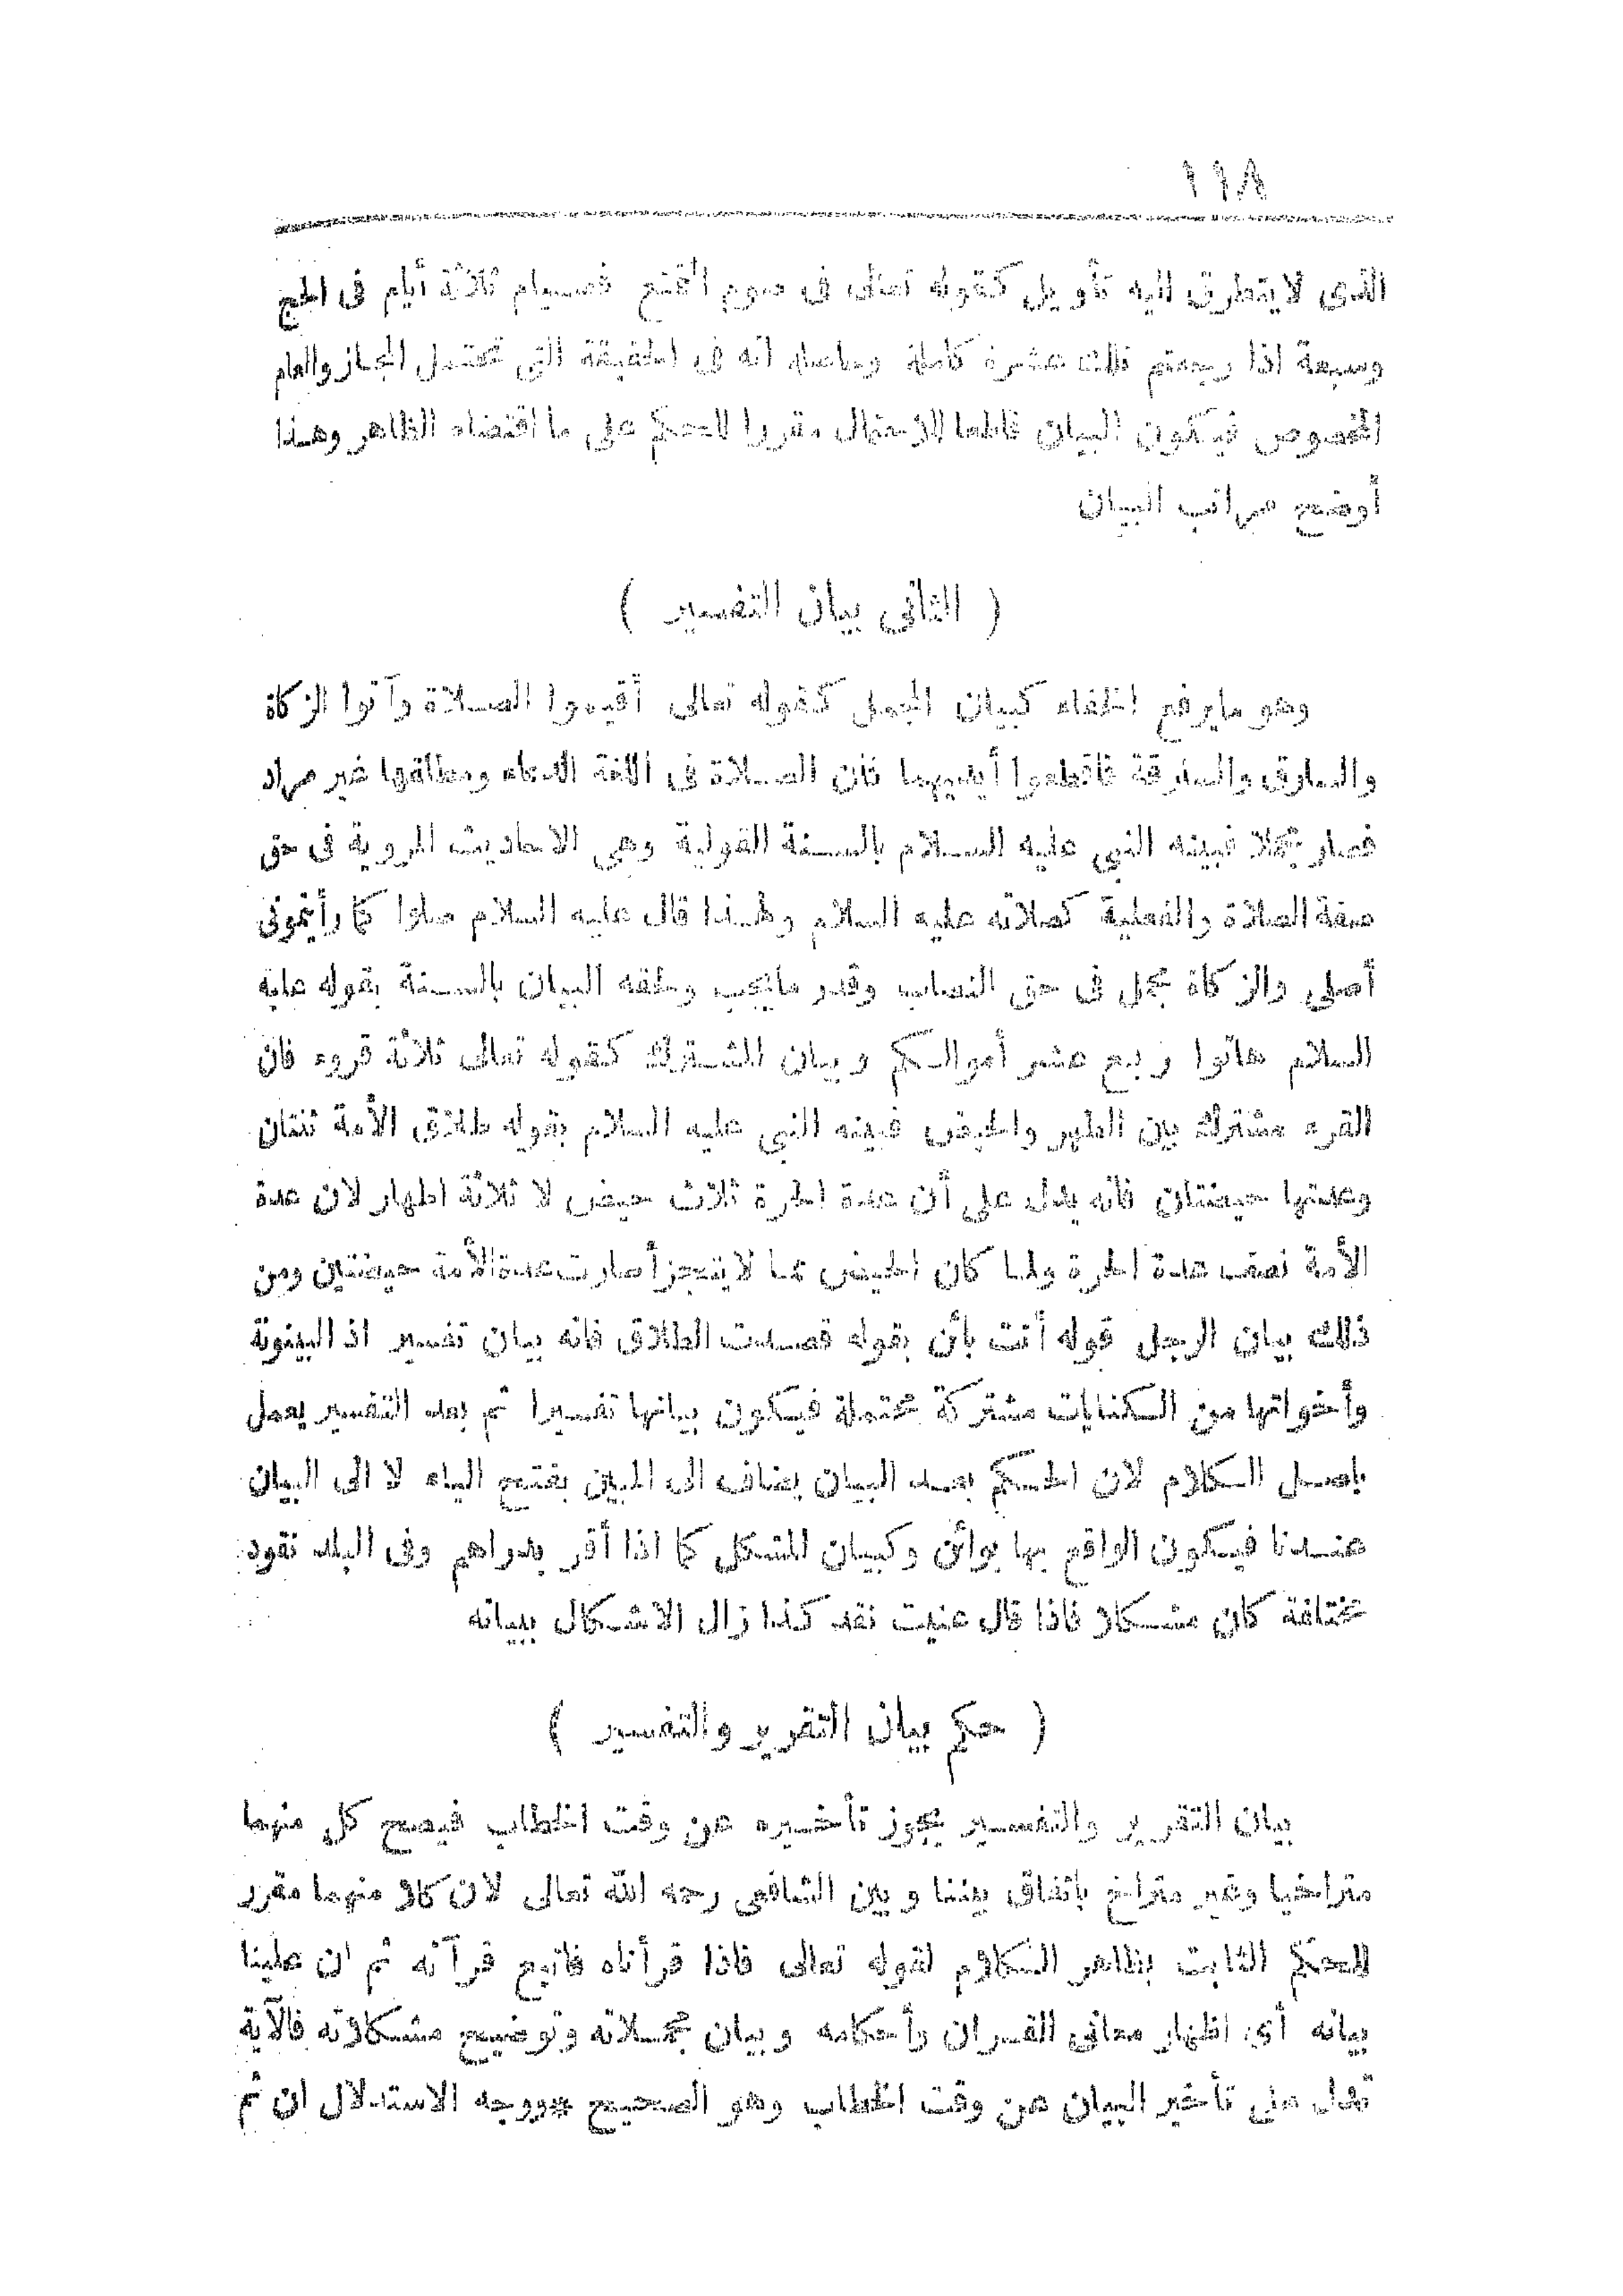 ١١٨
الذى لا يتطرق اليه تأويل كقوله تعالى فى صوم التمتع فصيام ثلاثة أيام فى الحج
وسبعة اذا رجعتم تلك عشرة كاملة وحاصله انه فى الحقيقة التى تحتمل المجاز والعام
المخصوص فيكون البيان قاطعا للاحتمال مقررا للحكم على ما اقتضاه الظاهر وهذا
أوضح مراتب البيان
( الثانى بيان التفسير )
وهو ما يرفع الخفاء كبيان المجمل كقوله تعالى أقيموا الصلاة وآتوا الزكاة
والسارق والسارقة فاقطعوا أيديهما فان الصلاة فى اللغة الدعاء ومطلقها غير مراد
فصار مجملا فبينه النبى عليه السلام بالسنة القولية وهى الاحاديث المروية فى حق
صفة الصلاة والفعلية كصلاته عليه السلام ولهذا قال عليه السلام صلوا كما رأيتمونى
أصلى والزكاة مجمل فى حق النصاب وقدر ما يجب ولحقه البيان بالسنة بقوله عليه
السلام هاتوا ربع عشر أموالكم وبيان المشترك كقوله تعالى ثلاثة قروء فان
القرء مشترك بين الطهر والحيض فبينه النبى عليه السلام بقوله طلاق الأمة ثنتان
وعدتها حيضتان فانه يدل على أن عدة الحرة ثلاث حيض لا ثلاثة اطهار لان عدة
الأمة نصف عدة الحرة ولما كان الحيض مما لا يتجزأ صارت عدة الأمة حيضتين ومن
ذلك بيان الرجل قوله أنت بائن بقوله قصدت الطلاق فانه بيان تفسير اذ البينونة
وأخواتها من الكنايات مشتركة محتملة فيكون بيانها تفسيرا ثم بعد التفسير يعمل
باصل الكلام لان الحكم بعد البيان يضاف الى المبين بفتح الياء لا الى البيان
عندنا فيكون الواقع بها بوائن وكبيان المشكل كما اذا أقر بدراهم وفى البلد نقود
مختلفة كان مشكلا فاذا قال عنيت نقد كذا زال الاشكال ببيانه
( حكم بيان التقرير والتفسير )
بيان التقرير والتفسير يجوز تأخيره عن وقت الخطاب فيصح كل منهما
متراخيا وغير متراخ باتفاق بيننا وبين الشافعى رحمه الله تعالى لان كلا منهما مقرر
للحكم الثابت بظاهر الكلام لقوله تعالى فاذا قرأناه فاتبع قرآنه ثم ان علينا
بيانه أى اظهار معانى القران وأحكامه وبيان مجملاته وتوضيح مشكلاته فالآية
تدل على تأخير البيان عن وقت الخطاب وهو الصحيح * ووجه الاستدلال ان ثم